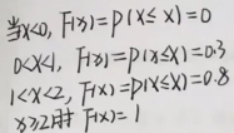 当x<0, F(x)=P(x≤x)=0
0<x<1, F(x)=P(x≤x)=0.3
1<x<2, F(x)=P(x≤x)=0.8
x≥2时 F(x)=1